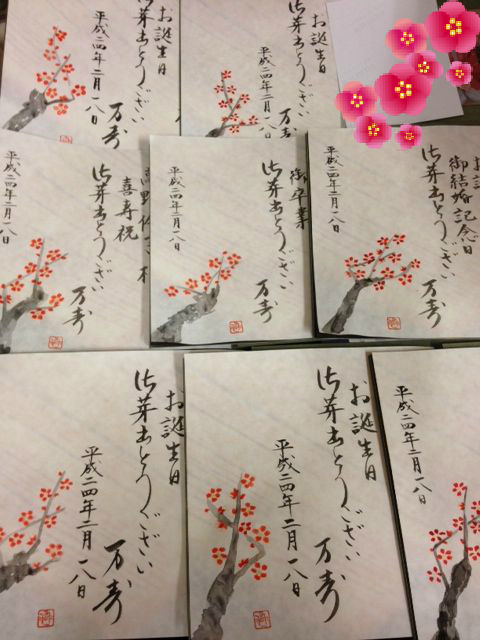 お誕生日
御芽出とうござい
平成二四年二月一八日
万寿
お誕生日
御芽出とうござい
平成二四年二月一八日
万寿
喜寿祝
御芽出とうござい
万寿
平成二四年二月一八日
御卒業
御芽出とうござい
万寿
平成二四年二月一八日
御結婚記念日
御芽出とうござい
万寿
平成二四年二月一八日
お誕生日
御芽出とうござい
平成二四年二月一八日
万寿
お誕生日
御芽出とうござい
平成二四年二月一八日
万寿
平成二四年二月一八日